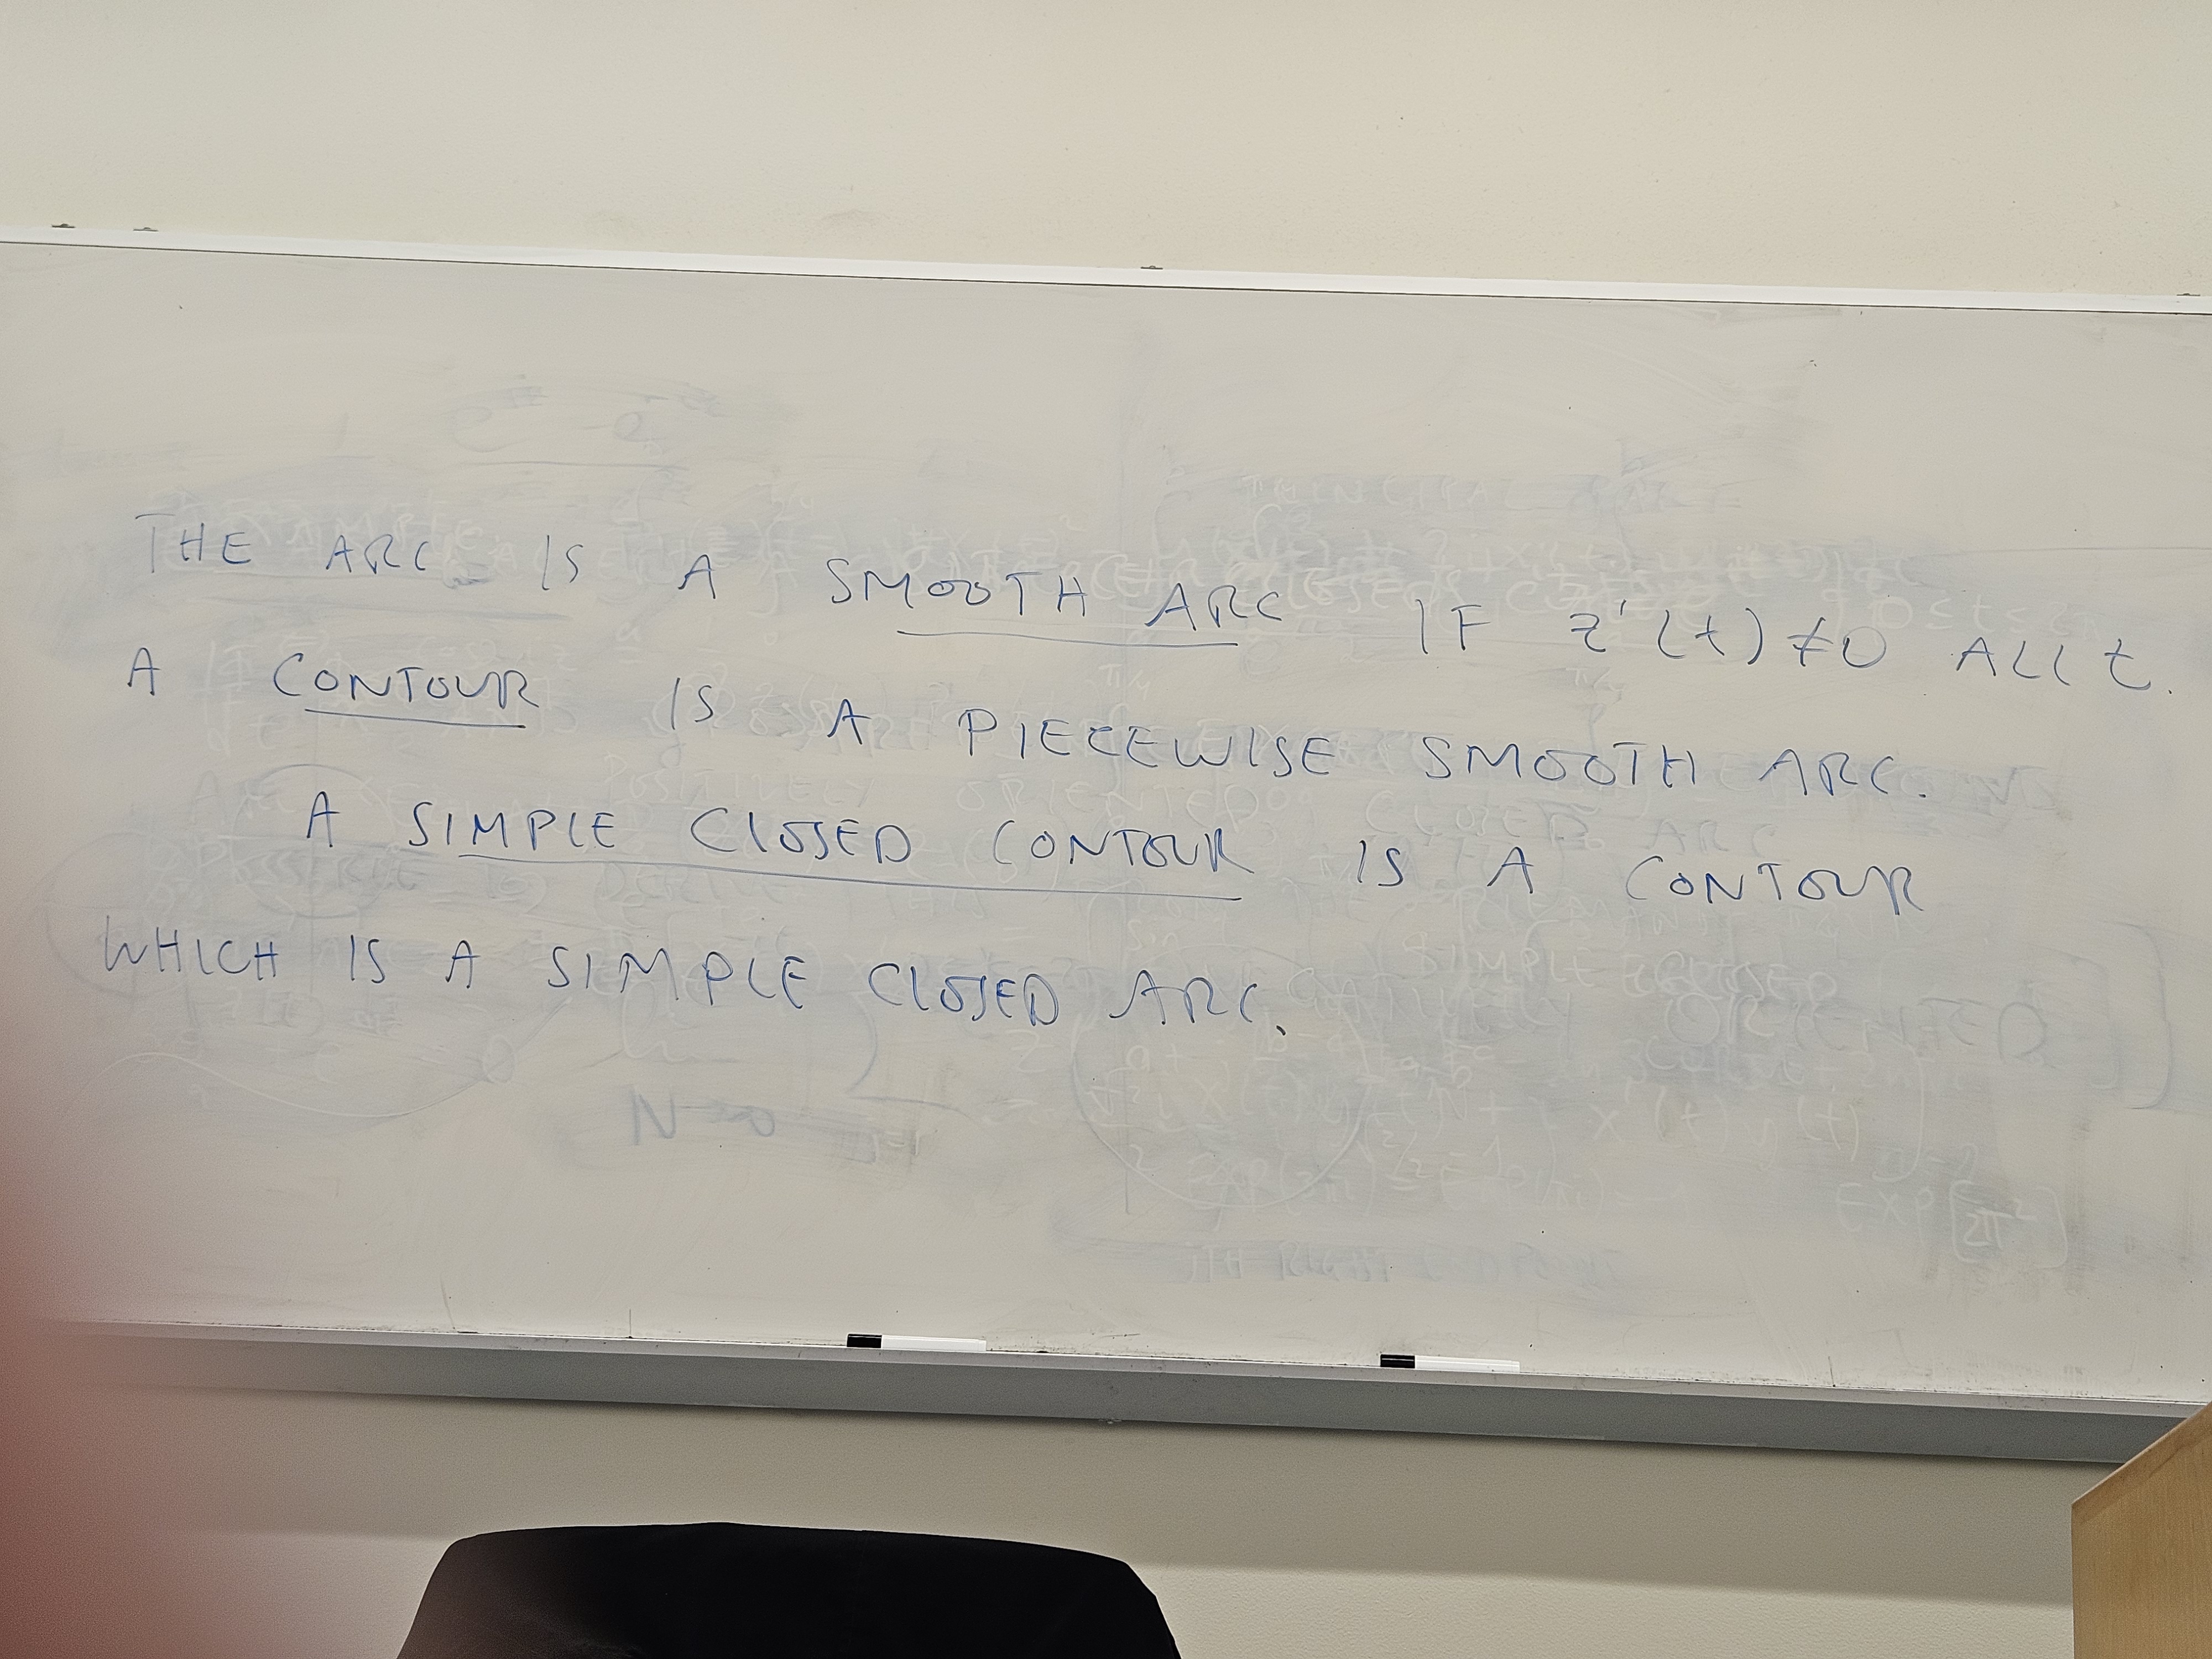 THE ARC IS A SMOOTH ARC IF z'(t) ≠ 0 ALL t.
A CONTOUR IS A PIECEWISE SMOOTH ARC.
A SIMPLE CLOSED CONTOUR IS A CONTOUR
WHICH IS A SIMPLE CLOSED ARC.